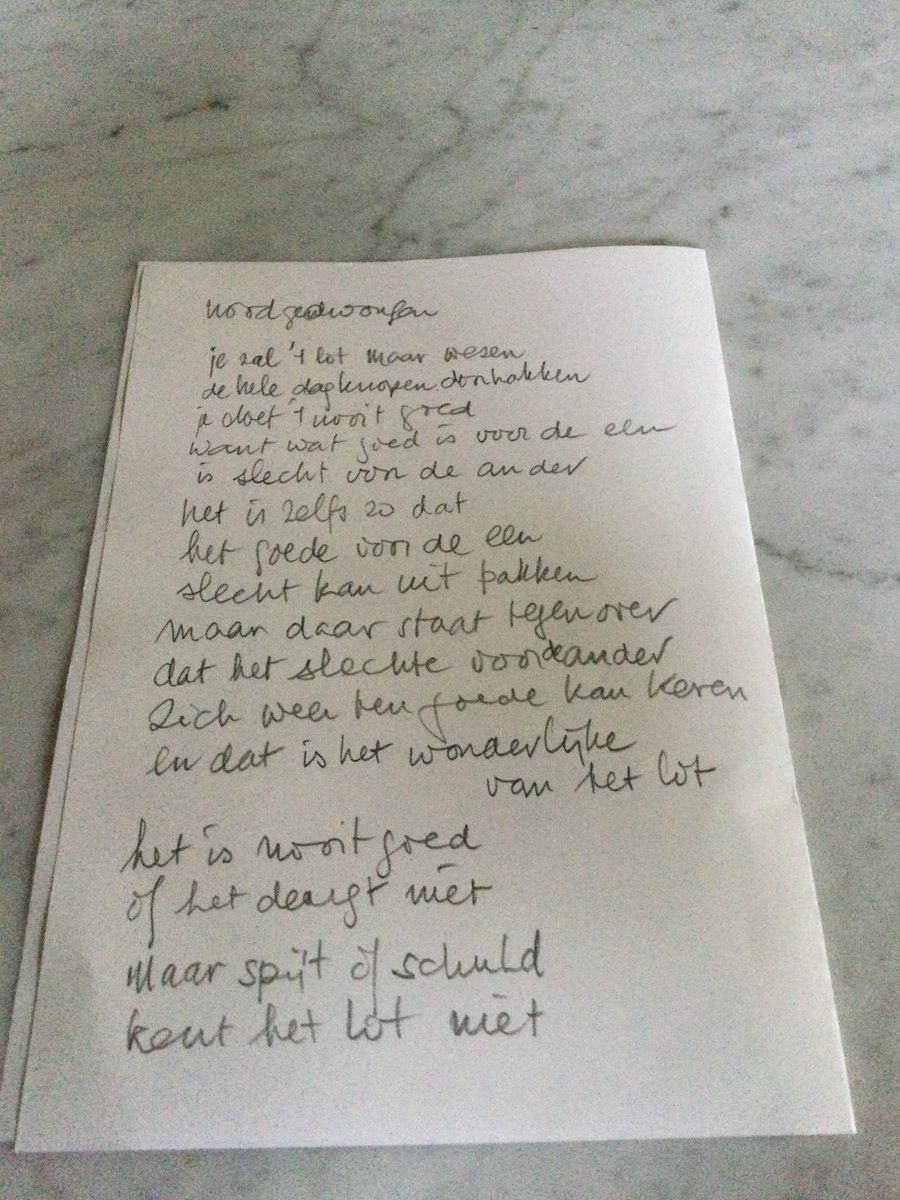 noodgedwongen
je zal 't lot maar wesen
de hele dag knopen doorhakken
je doet 't nooit goed
want wat goed is voor de een
is slecht voor de ander
het is zelfs zo dat
het goede voor de een
slecht kan uit pakken
maar daar staat tegenover
dat het slechte voor de ander
zich weer ten goede kan keren
en dat is het wonderlijke
van het lot
het is nooit goed
of het deugt niet
Maar spijt of schuld
kent het lot niet